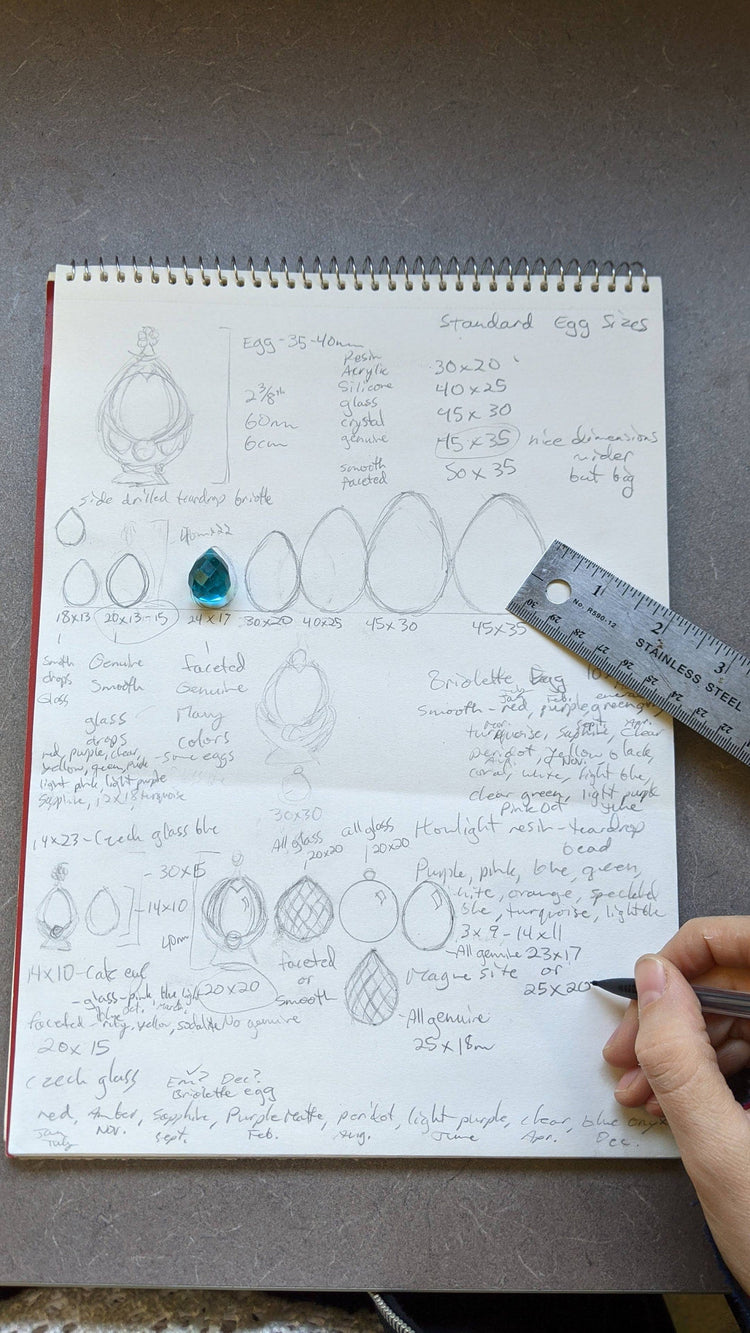 Standard Egg Sizes
Egg - 35-40mm
2 3/8th
60mm
6cm
Resin
Acrylic
Silicone
glass
crystal
genuine
smooth
faceted
30x20
40x25
45x30
45x35 nice dimensions
wider
but big
50x35
side drilled teardrop briolette
18x13 20x13-15 24x17 30x20 40x25 45x30 45x35
smooth
drops
Glass
Genuine
Smooth
glass
drops
faceted
Genuine
Many
colors
red, purple, clear,
yellow, green, - some eggs
light pink, light purple
Sapphire, 12x18 turquoise
1 2 3
No. R590-12
STAINLESS STEEL
30 29 28 27 26 25 24 23 22
Briolette Egg
Jan. Feb.
Smooth - red, purple, green
Sept. Apr.
turquoise, sapphire, clear
peridot, yellow, black,
Aug. Nov.
coral, white, light blue,
clear green, light purple
Pink Oct June
30x30
14x23 - Czech glass blue
All glass
20x20
all glass
20x20
Howlight resin - teardrop
bead
Purple, pink, blue, green,
white, orange, speckled
blue, turquoise, light blue
13x9 - 14x11
- 30x15
- 14x10
40mm
20x20
faceted
or
smooth
- All genuine 23x17
Magne site or
25x20
- All genuine
25x18m
14x10 -
- glass - pink, blue, light
Oct. March
faceted - ruby, yellow, sodalite No genuine
20x15
Czech glass Em? Dec?
Briolette egg
red, amber, Sapphire, Purple Matte, peridot, light purple, clear, blue onyx
Jan Nov. Sept. Feb. Aug. June Apr. Dec.
July